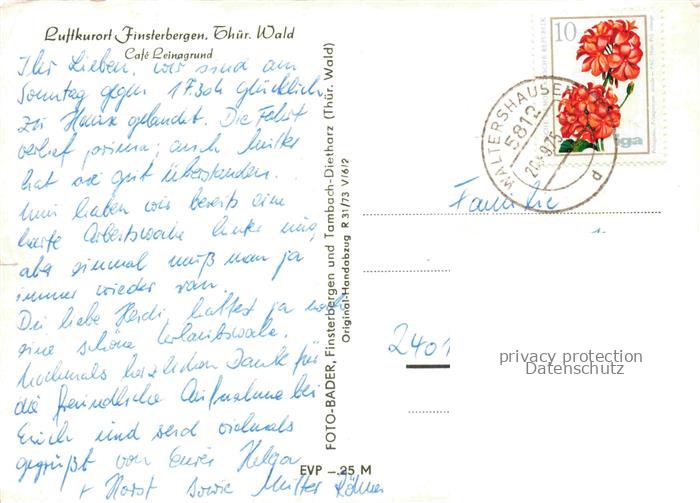 Luftkurort Finsterbergen, Thür. Wald
Café Leinagrund
Ihr Lieben, wir sind am
Sonntag gegen 17 30h glücklich
zu Hause gelandet. Die Fahrt
verlief prima; auch Mutter
hat sie gut überstanden.
Nun haben wir bereits eine
harte Arbeitswoche hinter uns,
aber einmal muß man ja
immer wieder ran.
Du liebe Heidi, hattest ja noch
eine schöne Urlaubswoche.
Nochmals herzlichen Dank für
die freundliche Aufnahme bei
Euch und seid vielmals
gegrüßt von Eurer Helga
+ Horst sowie Mutter
FOTO-BADER, Finsterbergen und Tambach-Dietharz (Thür. Wald)
Original-Handabzug R 31/73 V/6/2
EVP –.25 M
10
iga
WALTERSHAUSEN
5812
d
Familie
2401
privacy protection
Datenschutz